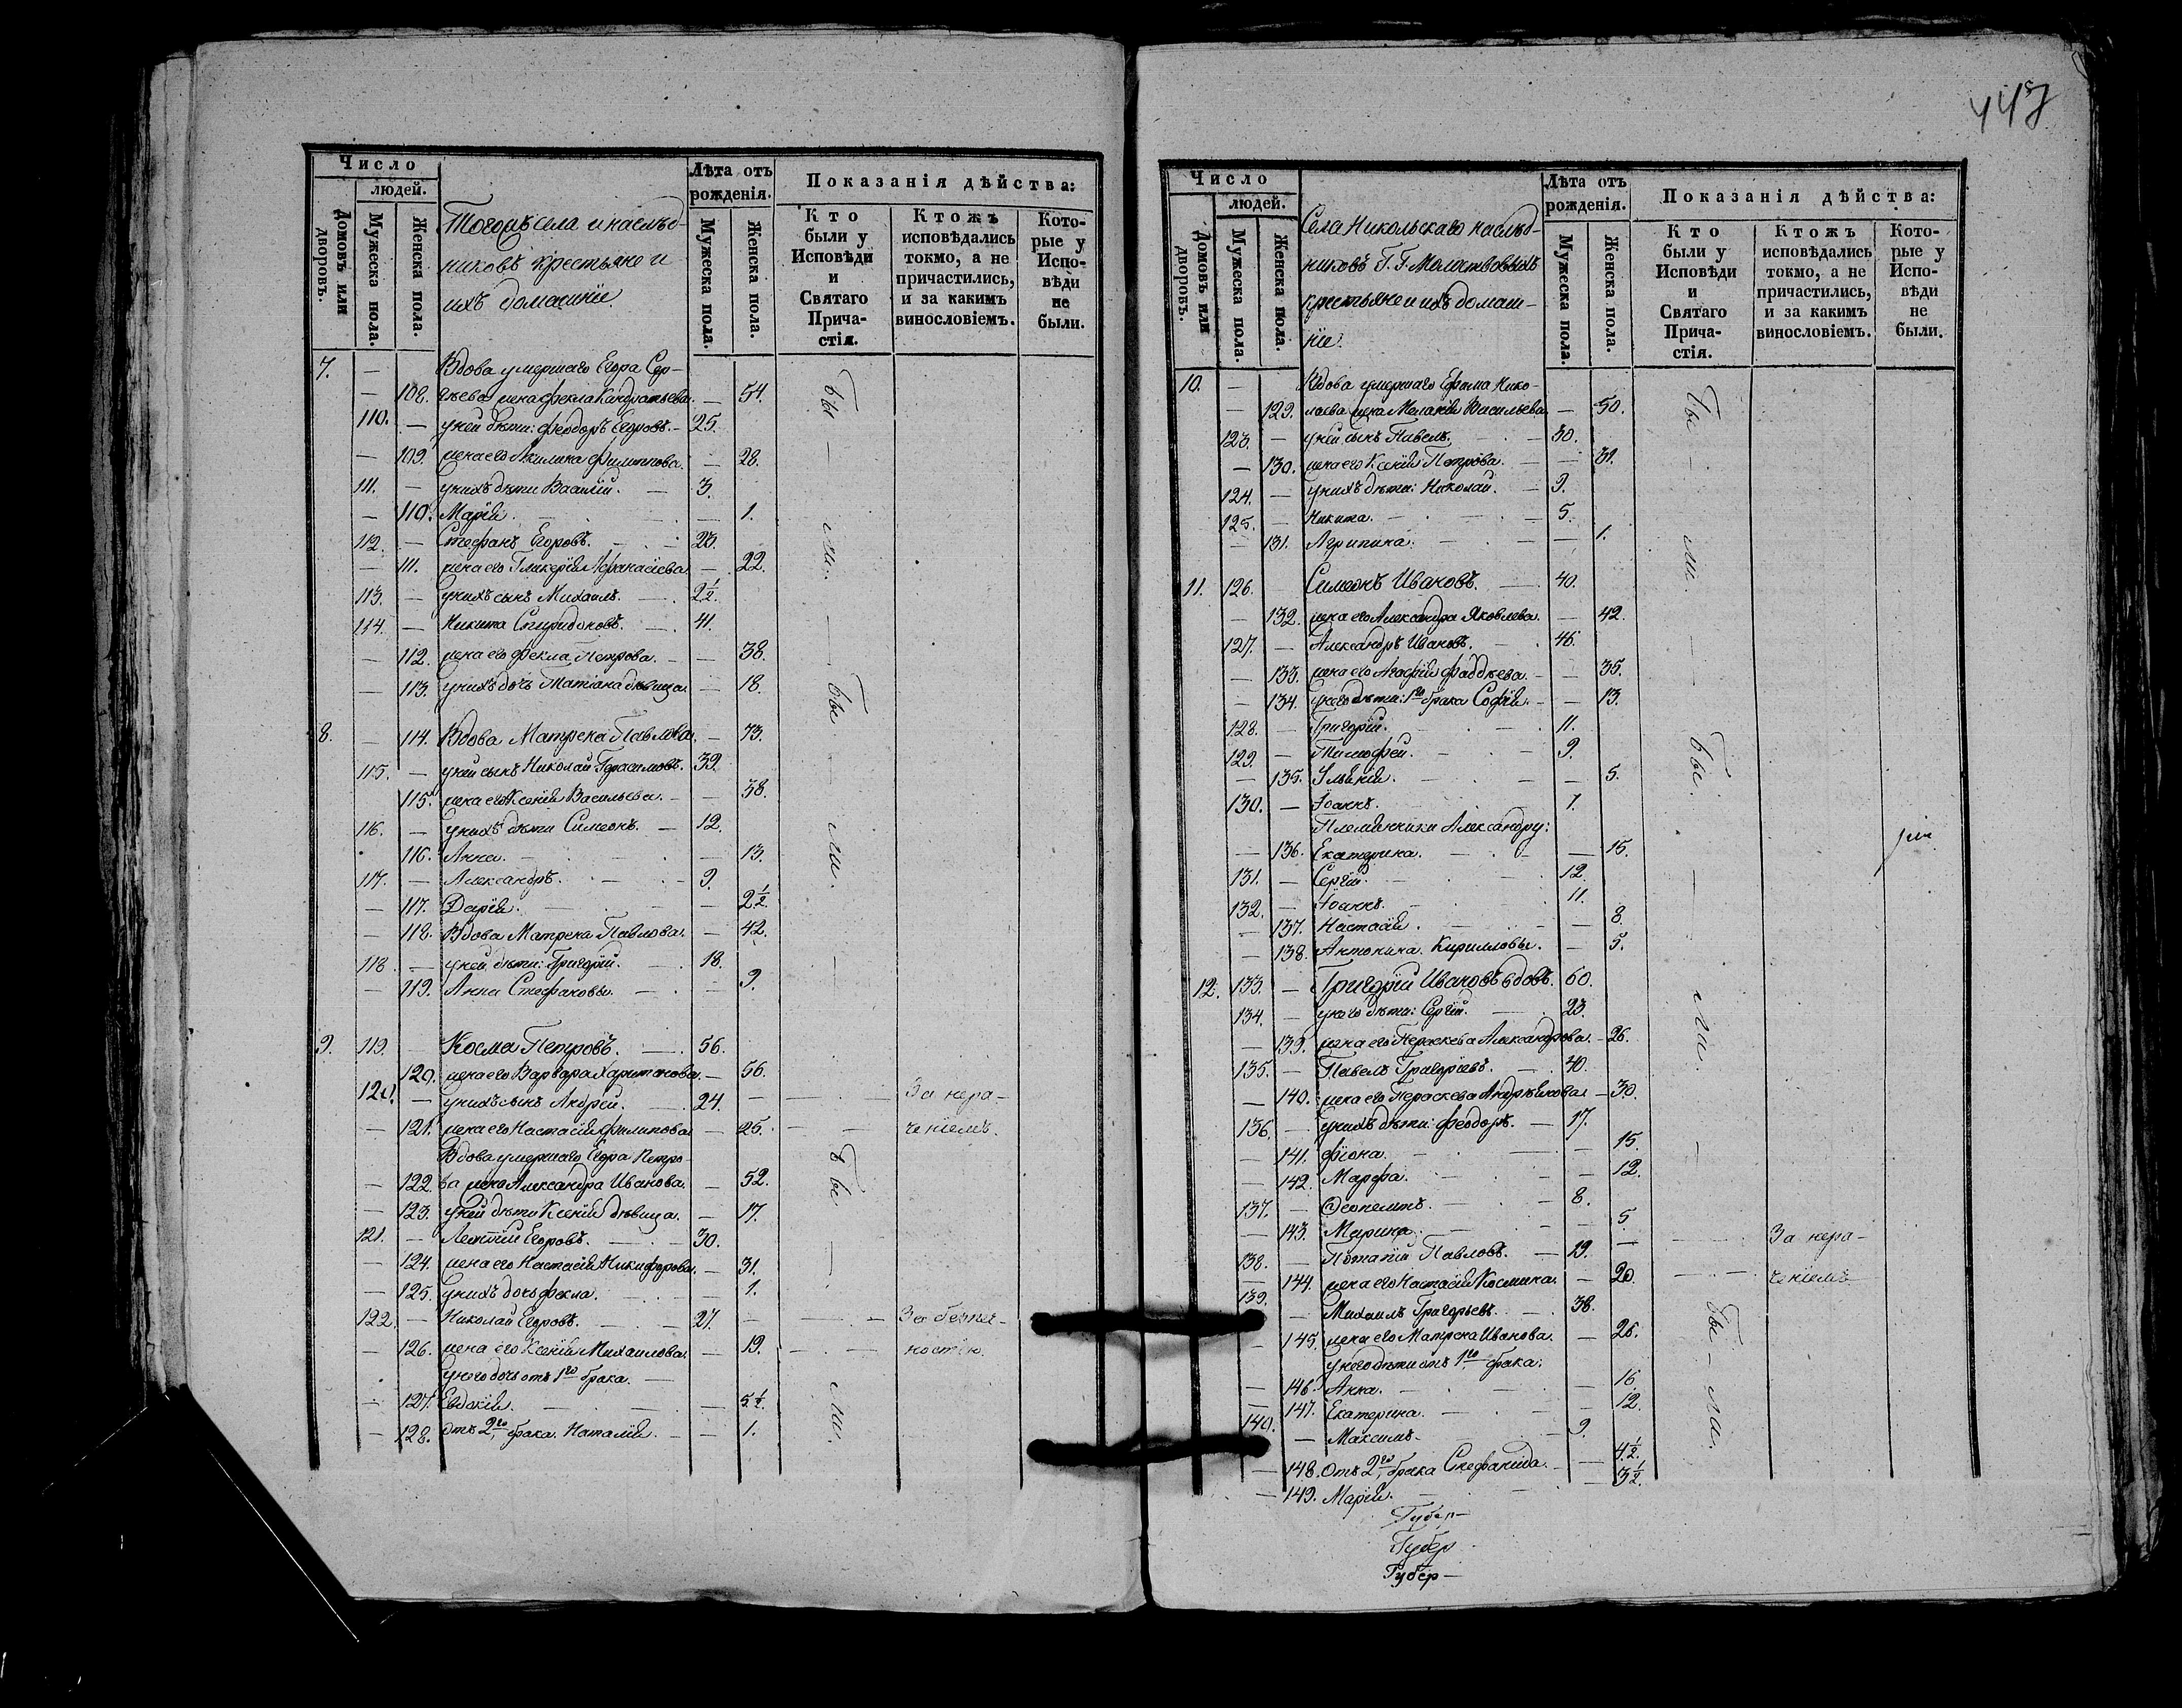 Число
людей.
Домовъ или дворовъ.
Мужеска пола.
Женска пола.
Тогожъ села и наслѣд-
никовъ крестьяне и
ихъ домашніе
Лѣта отъ рожденія.
Мужеска пола.
Женска пола.
Показанія дѣйства:
Кто были у Исповѣди и Святаго Прича-стія.
Ктожъ исповѣдались токмо, а не причастились, и за какимъ винословіемъ.
Кото-рые у Испо-вѣди не были.
7. — Вдова умершаго Егора Сер-
— 108. гѣева жена Фекла Кандратьева. — 54.
110. — у ней дѣти: Феодоръ Егоровъ. — 25.
— 109. жена его Акилина Филиппова. — 28.
111. — у нихъ дѣти Василій. — 3.
— 110. Марія. — 1.
112. — Стефанъ Егоровъ. — 23.
— 111. жена его Гликерія Афанасіева — 22.
113. — у нихъ сынъ Михаилъ. — 2½.
114. — Никита Спиридоновъ. — 41.
— 112. жена его Фекла Петрова. — 38.
— 113. у нихъ дочь Татіана дѣвица. — 18.
8. — 114. Вдова Матрена Павлова. — 73.
115. — у ней сынъ Николай Герасимовъ. 39.
115. жена его Ксенія Васильева. — 38.
116. — у нихъ дѣти Симеонъ. — 12.
116. Анна. — 13.
117. — Александръ. — 9.
— 117. Дарія. — 2½.
— 118. Вдова Матрена Павлова. — 42.
118. — у ней дѣти: Григорій. — 18.
— 119. Анна Стефановы. — 9.
9. 119. — Косма Петровъ. — 56.
120. жена его Варвара Харитонова. — 56.
120. — у нихъ сынъ Андрей. — 24. — За нера-
— 121. жена его Настасія Филипова — 25. — ченіемъ.
Вдова умершаго Егора Петро-
— 122. ва жена Александра Иванова. — 52.
— 123. у ней дѣти Ксенія дѣвица. — 17.
121. — Леонтій Егоровъ. — 30.
— 124. жена его Настасія Никифорова. — 31.
— 125. у нихъ дочь Фекла. — 1.
122. — Николай Егоровъ. — 27. — За безпеч-
— 126. жена его Ксенія Михаилова. — 19. — ностію.
У него дочь отъ 1го брака. —
— 127. Евдокія. — 5½.
— 128. отъ 2го брака. Наталія. — 1.
Бы — ли.
Бы — ли.
Бы — ли.
447
Число
людей.
Домовъ или дворовъ.
Мужеска пола.
Женска пола.
Села Никольскаго наслѣд-
никовъ Г. Г. Молоствовыхъ
крестьяне и ихъ домаш-
ніе.
Лѣта отъ рожденія.
Мужеска пола.
Женска пола.
Показанія дѣйства:
Кто были у Исповѣди и Святаго Прича-стія.
Ктожъ исповѣдались токмо, а не причастились, и за какимъ винословіемъ.
Кото-рые у Испо-вѣди не были.
10. — Вдова умершаго Ефима Нико-
— 129. лаева жена Меланія Васильева — 50.
123. — у ней сынъ Павелъ. — 30.
— 130. жена его Ксенія Петрова. — 31.
124. — у нихъ дѣти: Николай. — 9.
125. — Никита. — 5.
— 131. Агрипина. — 1.
11. 126. Симеонъ Ивановъ. — 40.
— 132. жена его Александра Яковлева. — 42.
127. — Александръ Ивановъ. 46.
— 133. жена его Агафія Фаддѣева. — 35.
— 134. у него дѣти: 1го брака Софія. — 13.
128. — Григорій. — 11.
129. — Тимофей. — 9.
— 135. Ульянія. — 5.
130. — Іоаннъ. 1.
Племянники Александру:
— 136. Екатерина. — 15.
131. — Сергій. 12.
132. — Іоаннъ. 11.
— 137. Настасія. — 8.
— 138. Антонина. Кириловы. — 5.
12. 133. — Григорій Ивановъ вдовъ. 60.
134. — у него дѣти: Сергій. 23.
— 139. жена его Пераскева Александрова. — 26.
135. — Павелъ Григорьевъ. — 40.
— 140. жена его Пераскева Андрѣянова — 30.
136. — у нихъ дѣти: Феодоръ. — 17.
— 141. Фіона. — 15.
— 142. Марфа. — 12.
137. — Феопемтъ. — 8.
— 143. Марина. — 5.
138. — Потапій Павловъ. — 19. — За нера-
— 144. жена его Настасія Космина. — 20. — ченіемъ
139. — Михаилъ Григорьевъ. — 38.
— 145. жена его Матрена Иванова. — 26.
У него дѣти отъ 1го брака:
— 146. Анна. — 16.
— 147. Екатерина. — 12.
140. — Максимъ. 9.
— 148. Отъ 2го брака Стефанида. — 4½.
— 149. Марія. — 3½.
Бы — ли.
Бы — ли.
Бы — ли.
Губер—
Губер
Губер—